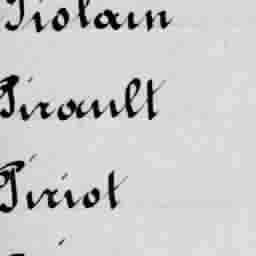 Piolain
Pirault
Piriot